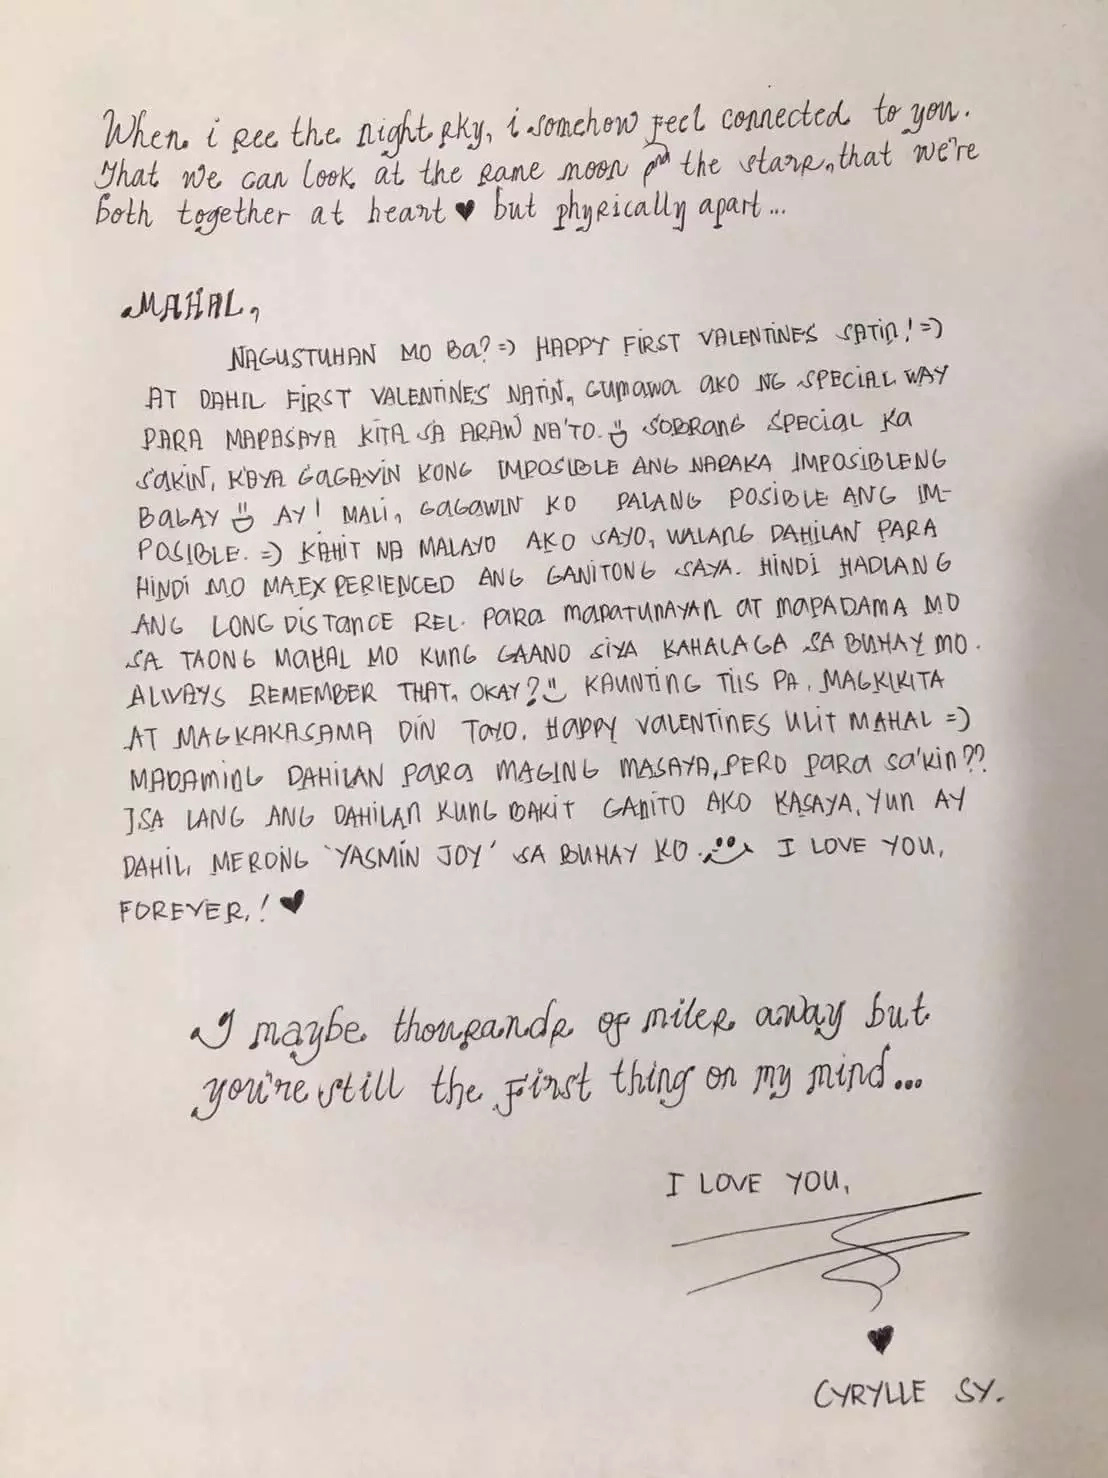 When i see the night sky, i somehow feel connected to you.
That we can look at the same moon and the stars, that we're
both together at heart ♥ but physically apart...
MAHAL,
NAGUSTUHAN MO BA? =) HAPPY FIRST VALENTINES SATIN! =)
AT DAHIL FIRST VALENTINES NATIN, GUMAWA AKO NG SPECIAL WAY
PARA MAPASAYA KITA SA ARAW NA'TO. SOBRANG SPECIAL KA
SAKIN, KAYA GAGAWIN KONG IMPOSIBLE ANG NAPAKA IMPOSIBLENG
BAGAY AY! MALI, GAGAWIN KO PALANG POSIBLE ANG IM-
POSIBLE. =) KAHIT NA MALAYO AKO SAYO, WALANG DAHILAN PARA
HINDI MO MAEXPERIENCED ANG GANITONG SAYA. HINDI HADLANG
ANG LONG DISTANCE REL. PARA MAPATUNAYAN AT MAPADAMA MO
SA TAONG MAHAL MO KUNG GAANO SIYA KAHALAGA SA BUHAY MO.
ALWAYS REMEMBER THAT, OKAY? KAUNTING TIIS PA, MAGKIKITA
AT MAGKAKASAMA DIN TAYO. HAPPY VALENTINES ULIT MAHAL =)
MADAMING DAHILAN PARA MAGING MASAYA, PERO PARA SA'KIN??
ISA LANG ANG DAHILAN KUNG BAKIT GANITO AKO KASAYA, YUN AY
DAHIL MERONG 'YASMIN JOY' SA BUHAY KO. I LOVE YOU,
FOREVER,! ♥
I maybe thousands of miles away but
you're still the first thing on my mind...
I LOVE YOU,
♥
CYRYLLE SY.